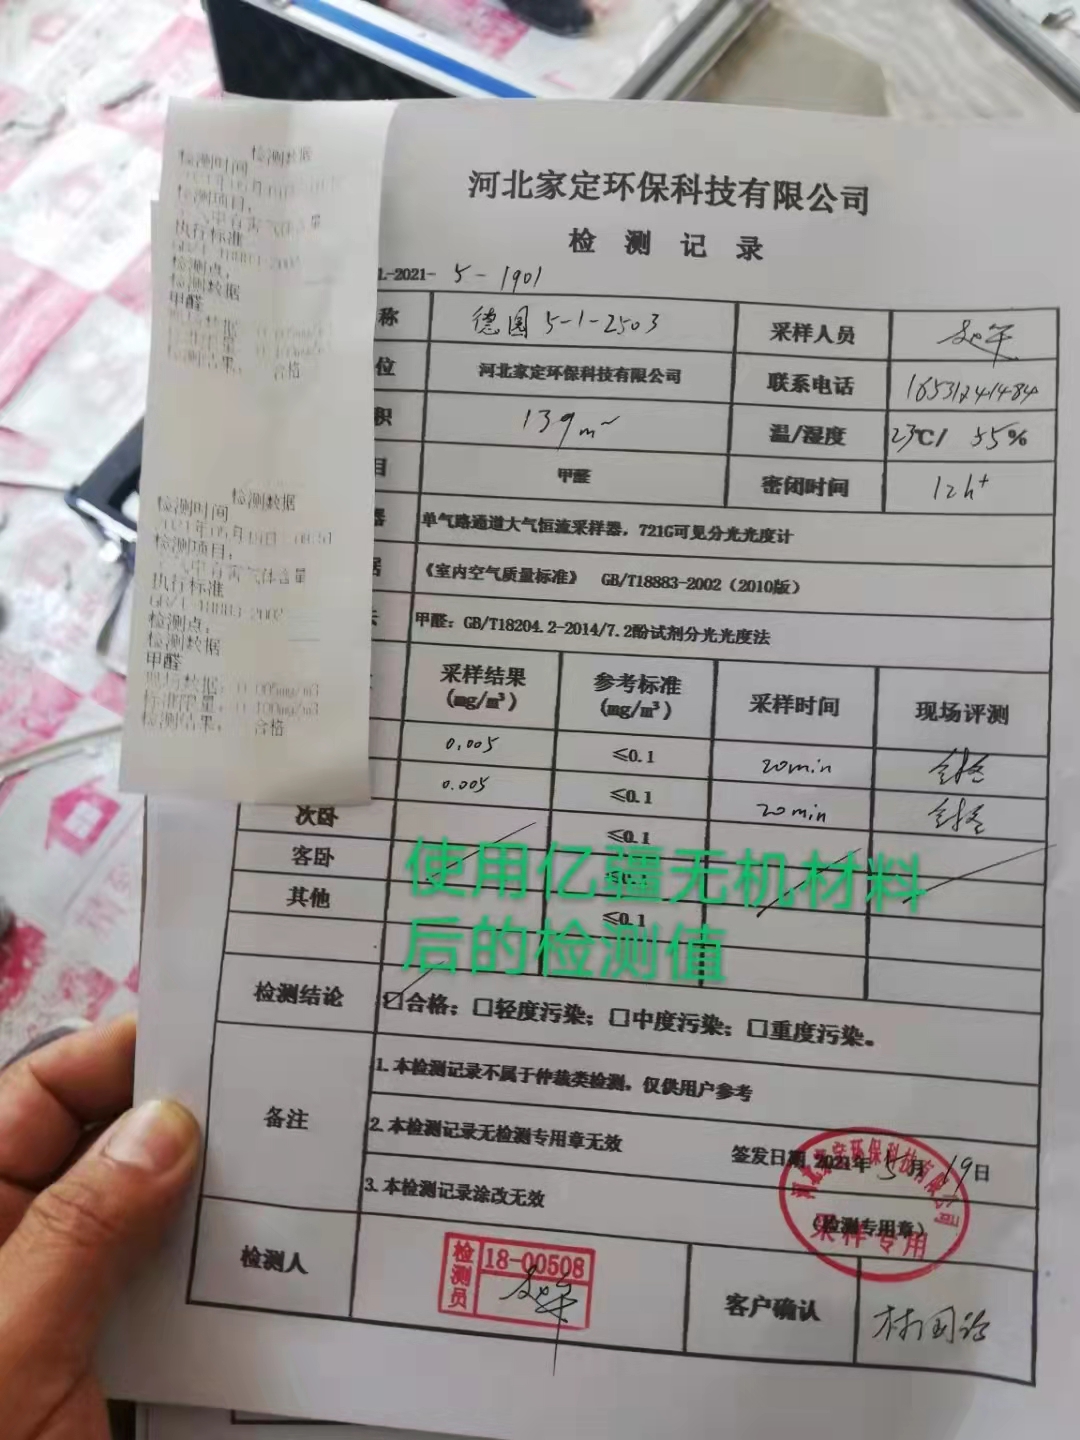 河北家定环保科技有限公司
检测记录
L-2021- 5-1901
称 德国 5-1-2503 采样人员
位 河北家定环保科技有限公司 联系电话 16531241484
积 139m² 温/湿度 23℃/ 55%
目 甲醛 密闭时间 12h+
器 单气路通道大气恒流采样器，721G可见分光光度计
《室内空气质量标准》 GB/T18883-2002（2010版）
甲醛：GB/T18204.2-2014/7.2酚试剂分光光度法
采样结果(mg/m³) 参考标准(mg/m³) 采样时间 现场评测
0.005 ≤0.1 20min 合格
0.005 ≤0.1 20min 合格
次卧 ≤0.1
客卧
其他 ≤0.1
使用亿疆无机材料
后的检测值
检测结论 ☑合格；□轻度污染；□中度污染；□重度污染。
备注
1.本检测记录不属于仲裁类检测，仅供用户参考
2.本检测记录无检测专用章无效
签发日期 2021年 5月 19日
3.本检测记录涂改无效
（检测专用章）
河北家定环保科技有限公司
采样专用
检测人
检测员
18-00508
客户确认
检测数据
检测时间
检测项目：
执行标准
GB/T-18883-2002
检测点：
检测数据
甲醛
检测结果： 合格
检测数据
检测时间
检测项目：
执行标准
GB/T-18883-2002
检测点：
检测数据
甲醛
0.005mg/m3
标准限量：0.100mg/m3
检测结果： 合格